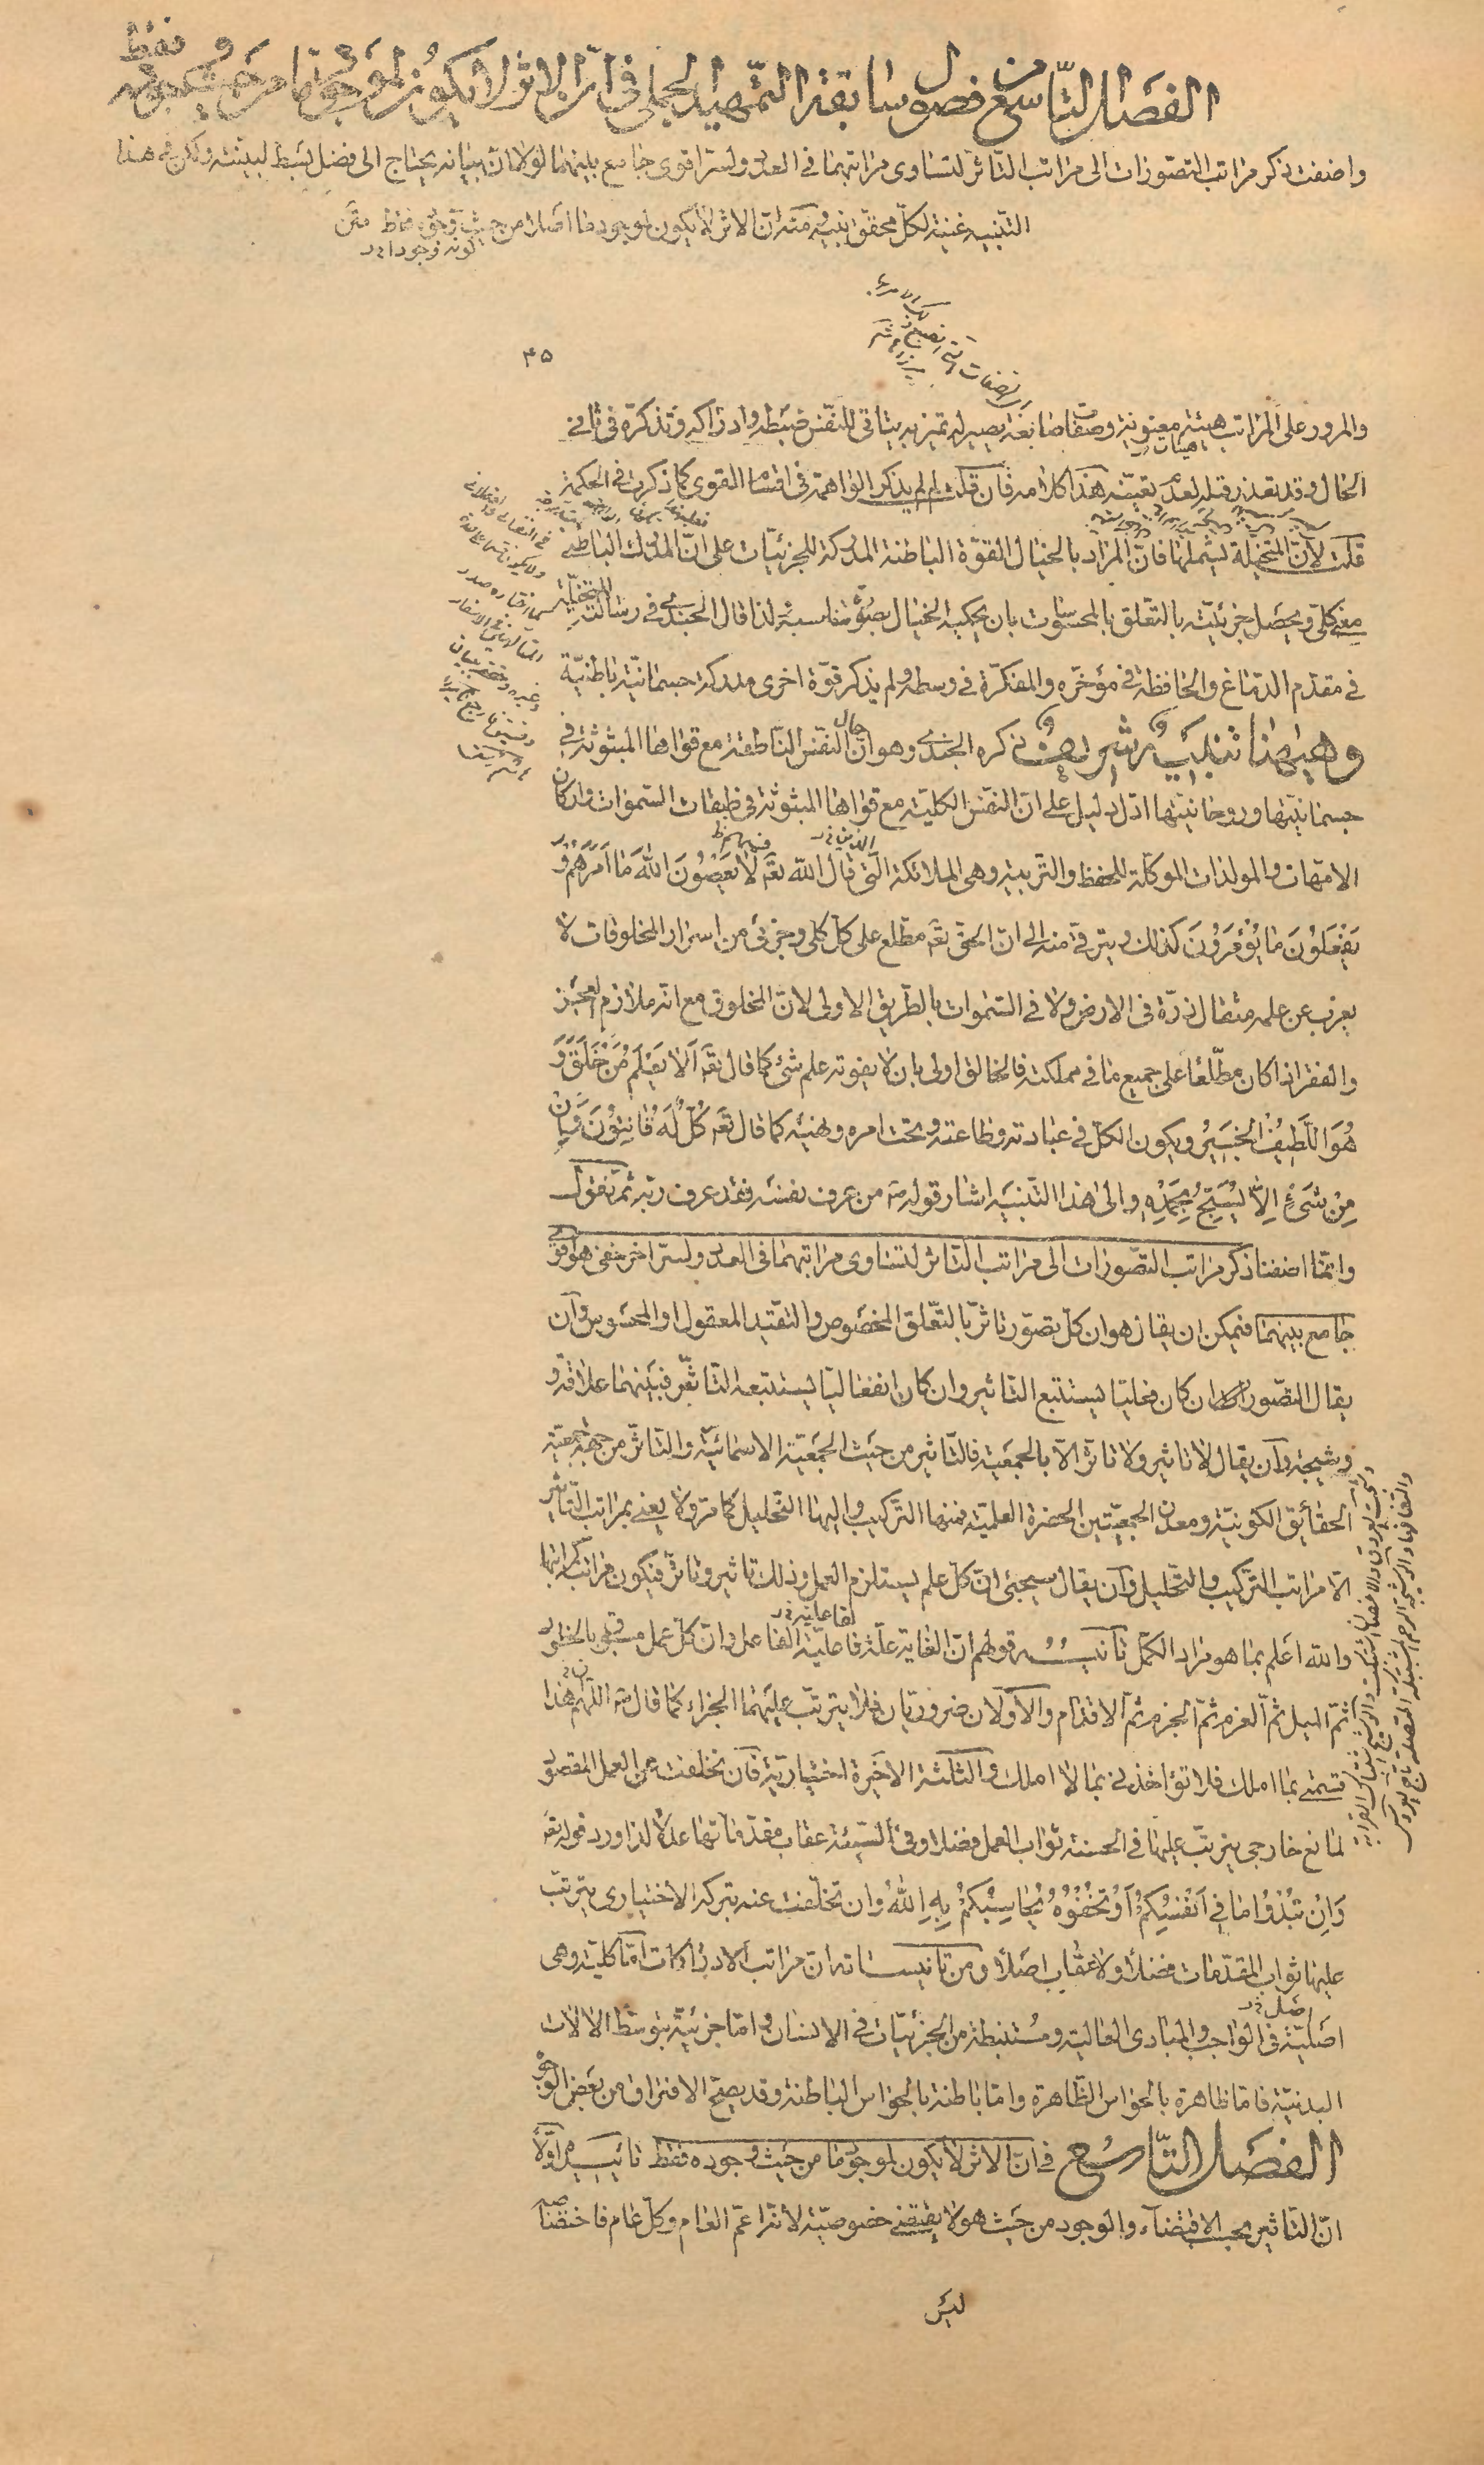 الفصل التاسع من فصول سابقة التمهيد الجملي في ان الاثر لا يكون لموجود ما من حيث وجوده فقط
واضفت ذكر مراتب التصورات الى مراتب التأثر لتساوى مراتبهما في العدد ولسر اقوى جامع بينهما لولا ان بيانه يحتاج الى فضل بسط لبينته ولكن في هذا
التنبيه غنية لكل محقق نبيه منه ان الاثر لا يكون لموجود ما اصلا من حيث فقط متن
كونه وجودا
۴۵
والمرور على المراتب هيئة معنوية وصفات صابغة يصير له تميز به يتأتى للنفس ضبطه وادراكه وتذكره في ثاني
الحال وقد تعذر قبله لعدم تعينه هذا كلامه فان قلت لم لم يذكر الواهمة في اقسام القوى كما ذكرت في الحكمة
قلت لان المتخيلة تشملها فان المراد بالخيال القوة الباطنة المدركة للجزئيات على ان المدرك الباطني
معنى كلى ويحصل جزئيته بالتعلق بالمحسوسات بان يحكيه الخيال بصورة مناسبة لذا قال الجندي في رسالته
في مقدم الدماغ والحافظة في مؤخره والمفكرة في وسطه ولم يذكر قوة اخرى مدركة جسمانية باطنية
وهيهنا تنبيه شريف ذكره الجندي وهو ان حال النفس الناطقة مع قواها المبثوثة في
جسمانيتها وروحانيتها ادل دليل على ان النفس الكلية مع قواها المبثوثة في طبقات السموات واركان
الامهات والمولدات الموكلة للحفظ والتربية وهي الملائكة التي قال الله تعه لَا يَعْصُونَ اللهَ مَا أَمَرَهُمْ وَ
يَفْعَلُونَ مَا يُؤْمَرُونَ كذلك ويترقى منه الى ان الحق تعه مطلع على كل كلى وجزئى من اسرار المخلوقات لا
يعزب عن علمه مثقال ذرة في الارض ولا في السموات بالطريق الاولى لان المخلوق مع انه ملازم العجز
والفقر اذا كان مطلعا على جميع ما في مملكته فالخالق اولى بان لا يفوته علم شئ كما قال تعه اَلَا يَعْلَمُ مَنْ خَلَقَ وَ
هُوَ اللَّطِيفُ الْخَبِيرُ ويكون الكل في عبادته وطاعته وتحت امره ونهيه كما قال تعه كُلٌّ لَهُ قَانِتُونَ وَاِنْ
مِنْ شَيْءٍ اِلَّا يُسَبِّحُ بِحَمْدِهِ والى هذا التنبيه اشار قوله من عرف نفسه فقد عرف ربه ثم نقول
وانما اضفنا ذكر مراتب التصورات الى مراتب التأثر لتساوى مراتبهما في العدد ولسر اخر خفى هو اقوى
جامع بينهما فيمكن ان يقال هو ان كل تصور تأثر بالتعلق المخصوص والتقيد المعقول او المحسوس وان
يقال التصور ان كان فعليا يستتبع التأثير وان كان انفعاليا يستتبعه التأثير فبينهما علاقة و
وشيجة وان يقال لا تأثير ولا تأثر الا بالجمعية فالتأثير من حيث الجمعية الاسمائية والتأثر من جهة جمعية
الحقائق الكونية ومعدن الجمعيتين الحضرة العلمية فمنها التركيب واليها التحليل كما مر ولا يعنى بمراتب التأثير
الا مراتب التركيب والتحليل وان يقال سيجئ ان كل علم يستلزم العمل وذلك تأثير وتأثر فيكون مراتبها
والله اعلم بما هو مراد الكمل تأنيس قولهم ان الغاية علة فاعلية الفاعل وان كل عمل مسبوق بالخطور
ثم الميل ثم العزم ثم الجزم ثم الاقدام والاولان ضروريان فلا يترتب عليهما الجزاء كما قال اللهم هذا
قسمتى بما املك فلا تؤاخذنى بما لا املك والثلثة الاخيرة اختيارية فان تخلفت عن العمل المقصود
لمانع خارجى يترتب عليها في الحسنة ثواب العمل فضلا وفي السيئة عقاب مقدماتها عدلا لذا ورد قوله تعه
وَاِنْ تُبْدُوا مَا فِي اَنْفُسِكُمْ اَوْ تُخْفُوهُ يُحَاسِبْكُمْ بِهِ اللهُ وان تخلفت عنه بتركه الاختيارى يترتب
عليها ثواب المقدمات فضلا ولا عقاب اصلا ومن تأنيساته ان مراتب الادراكات اما كلية وهى
اصلية في الواجب والمبادى العالية ومستنبطة من الجزئيات في الانسان واما جزئية بتوسط الالات
البدنية فاما ظاهرة بالحواس الظاهرة واما باطنة بالحواس الباطنة وقد يصح الافتراق من بعض الوجوه
الفصل التاسع في ان الاثر لا يكون لموجود ما من حيث وجوده فقط تأنيسه اولا
ان التأثير بحسب الاقتضاء والوجود من حيث هو لا يقتضى خصوصية لانه اعم العام وكل عام فاختصاصه
ليس